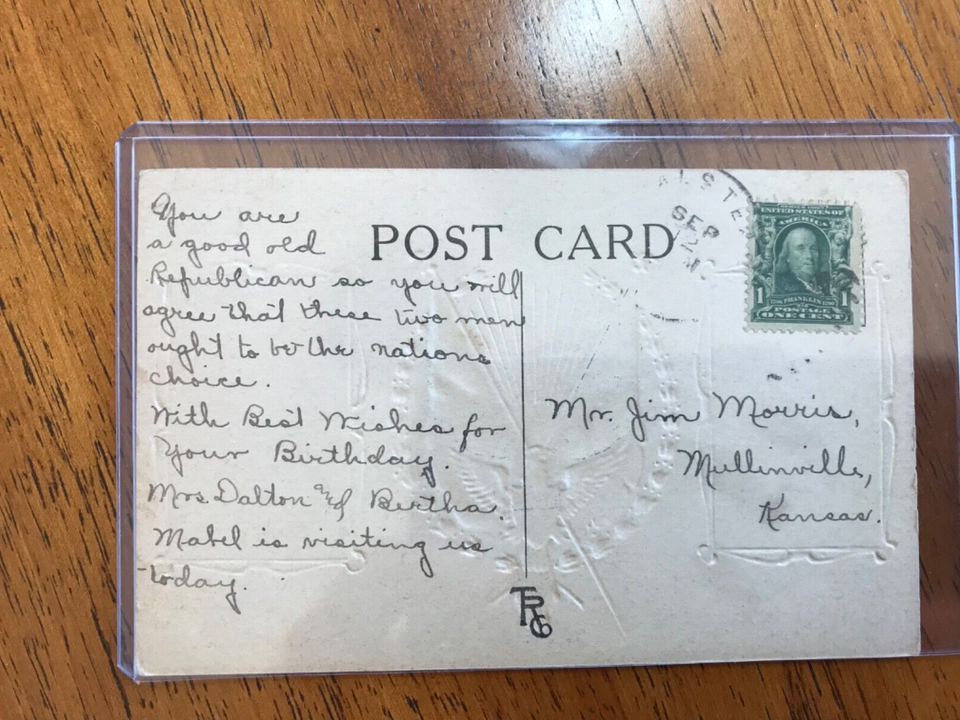 You are
a good old
Republican so you will
agree that these two men
ought to be the nations
choice.
With Best Wishes for
Your Birthday.
Mrs. Dalton and Bertha.
Mabel is visiting us
today.
POST CARD
SEP
UNITED STATES OF
AMERICA
1 FRANKLIN 1
POSTAGE
ONE CENT
Mr. Jim Morris,
Mullinville,
Kansas.
TRCo